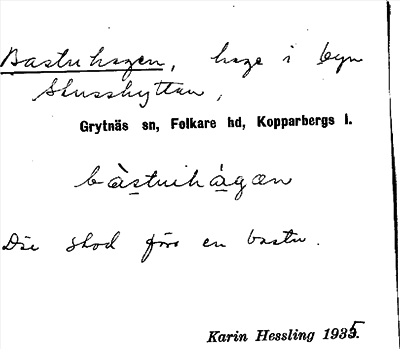 Bastuhagen, hage i byn
Skusshyttan,
Grytnäs sn, Folkare hd, Kopparbergs l.
bàstuihágan
Där stod förr en bastu.
Karin Hessling 1935.